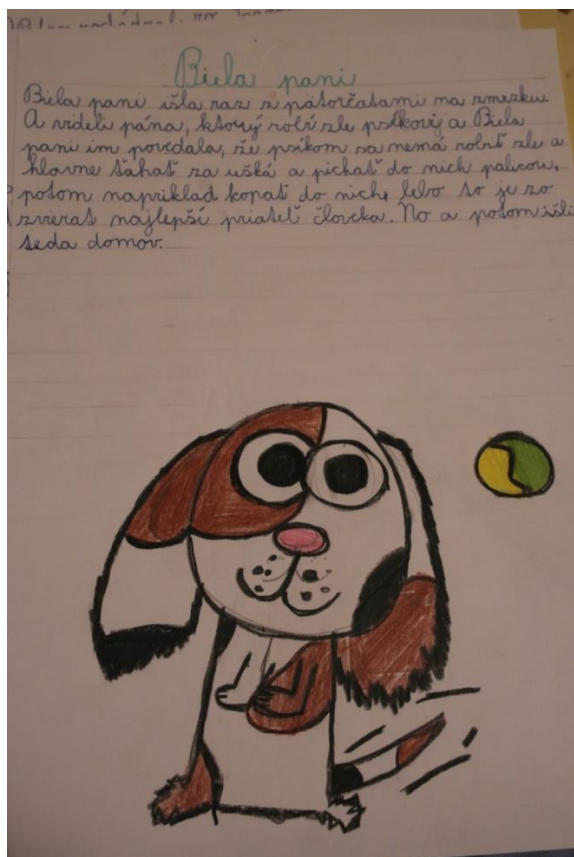 Biela pani
Biela pani išla raz z pätorčatami na zmrzku.
A videli pána, ktorý robí zle psíkovy a Biela
pani im povedala, že psíkom sa nemá robiť zle a
hlavne ťahať za uška a pichať do nich palicou,
potom napriklad kopať do nich, lebo to je zo
zvierat najlepší priateľ človeka. No a potom išli
teda domov.